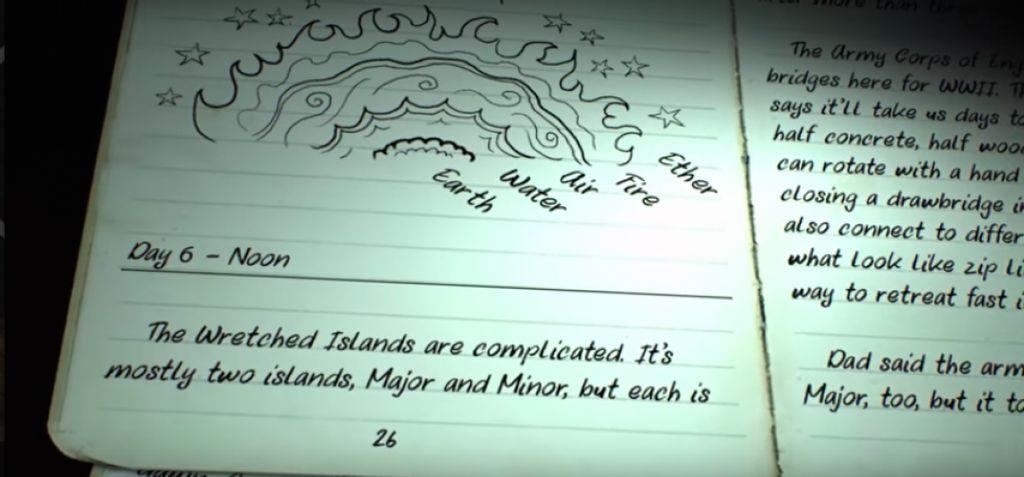 Earth
Water
Air
Fire
Ether
Day 6 - Noon
The Wretched Islands are complicated. It's
mostly two islands, Major and Minor, but each is
26
more than
The Army Corps of
bridges here for WWII.
says it'll take us days
half concrete, half
can rotate with a hand
closing a drawbridge
also connect to
what look like zip
way to retreat fast
Dad said the
Major, too, but it